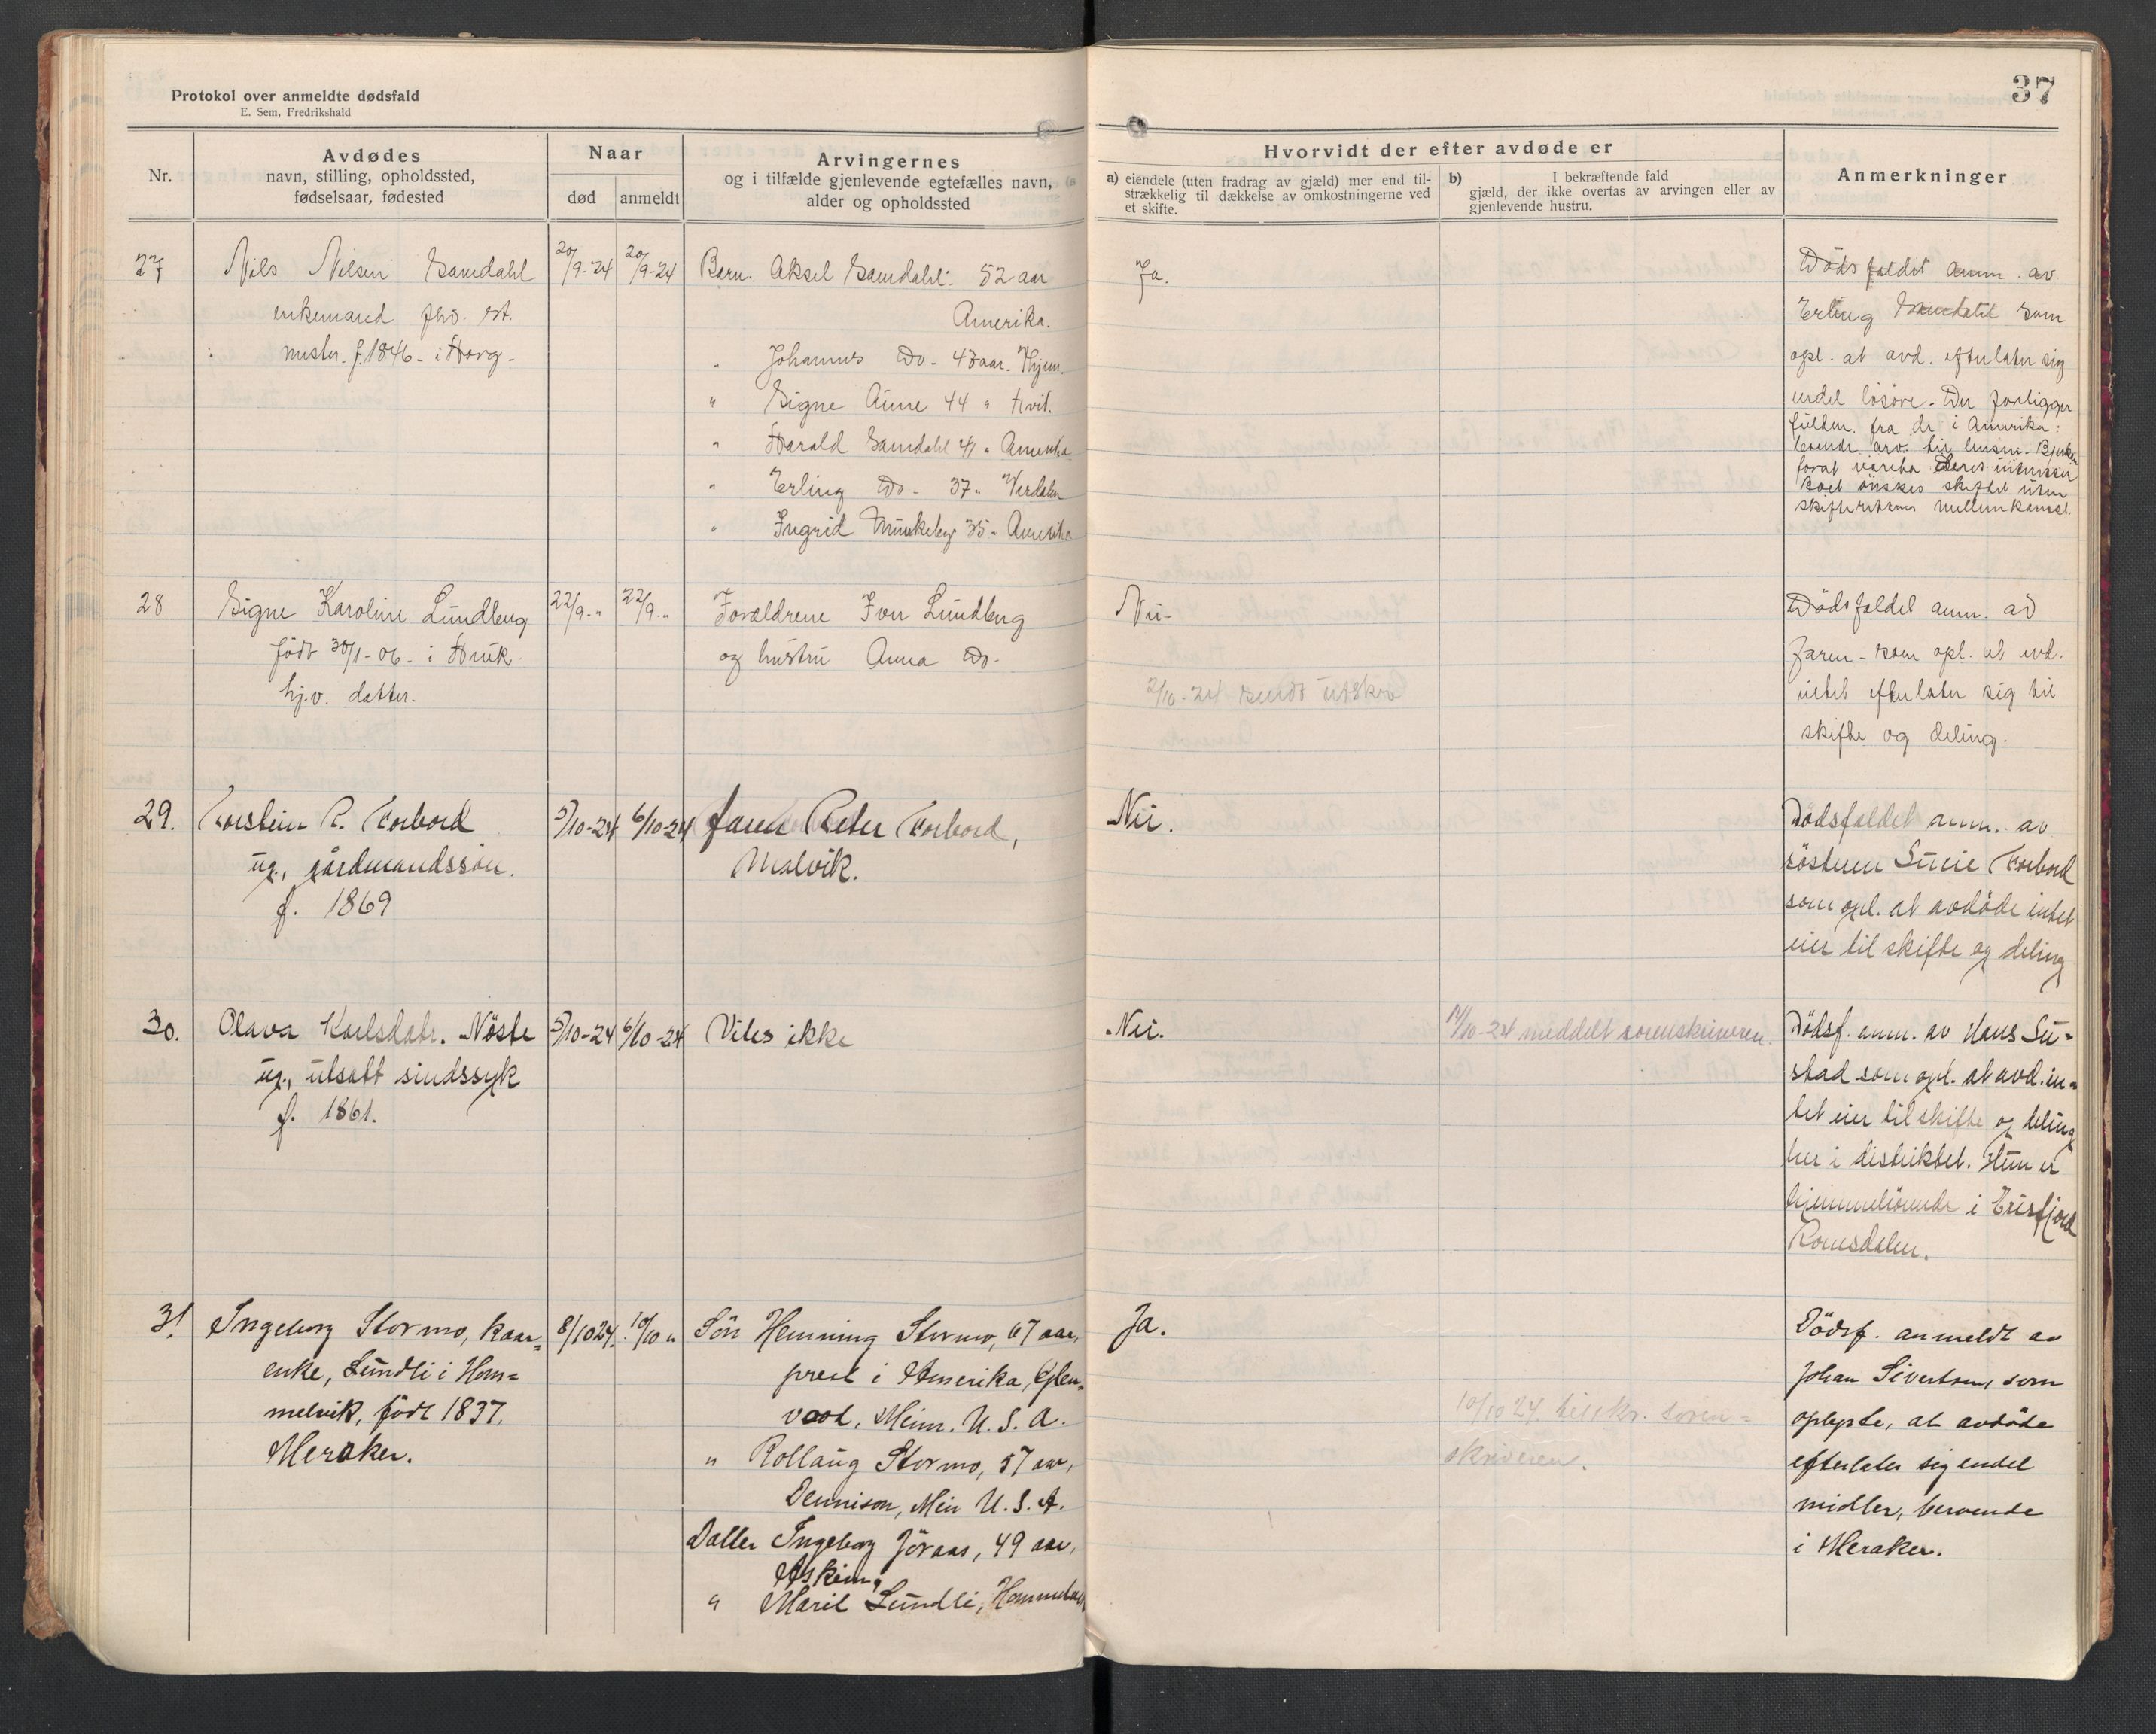 Protokol over anmeldte dødsfald
E. Sem, Fredrikshald
37
Nr.
Avdødes
navn, stilling, opholdssted,
fødselsaar, fødested
Naar
død
anmeldt
Arvingernes
og i tilfælde gjenlevende egtefælles navn,
alder og opholdssted
Hvorvidt der efter avdøde er
a) eiendele (uten fradrag av gjæld) mer end til-
strækkelig til dækkelse av omkostningerne ved
et skifte.
b) I bekræftende fald
gjæld, der ikke overtas av arvingen eller av
gjenlevende hustru.
Anmerkninger
27
Nils Nilsen Samdahl
enkemand fhv. st.
mester. f. 1846 - i Horg -
20/9-24
20/9-24
Barn. Aksel Samdahl: 52 aar
Amerika.
" Johannes Do - 43 aar. Hjem.
" Signe Aune 44 " Hvit.
" Harald Samdahl 41 " Amerika
" Erling Do - 37 " Verdalen
" Ingrid Munkeberg 35 - Amerika
Ja.
Dødsfaldet anm. av
Erling Samdahl som
opl. at avd. efterlater sig
endel løsøre. Der foreligger
fuldm. fra de i Amerika
boende arv. til
Boet ønskes skiftet uten
skifterettens mellemkomst.
28
Signe Karoline Lundberg
født 30/1-06 - i Bruk
hj.v. datter.
22/9 - "
22/9 - "
Forældrene Iver Lundberg
og hustru Anna Do -
Nei -
2/10-24 sendt utskr
Dødsfaldet anm. av
Faren - som opl. at avd.
intet efterlater sig til
skifte og deling.
29.
Torstein P. Forbord
ug., gårdmandssøn.
f. 1869
5/10-24
6/10-24
Faren Peter Forbord,
Malvik.
Nei.
Dødsfaldet anm. av
søsteren Lucie Forbord
som opl. at avdøde intet
eier til skifte og deling
30.
Olava Karlsdatr. Nöste
ug., utsatt sindssyk
f. 1861.
5/10-24
6/10-24
Vites ikke
Nei.
14/10-24 meddelt sorenskriveren.
Dødsf. anm. av Hans Su-
stad som opl. at avd. in-
tet eier til skifte og deling
her i distriktet. Hun er
hjemmehørende i Erisfjord
Romsdalen.
31.
Ingeborg Stormo, kaar=
enke, Lundli i Hom=
melvik, født 1837,
Meraker.
8/10 24.
10/10 "
Sön Henning Stormo, 67 aar,
prest i Amerika, Glen-
vood, Minn. U. S. A.
" Rollaug Stormo, 57 aar,
Dennison, Min U. S. A.
Datter Ingeborg Jöraas, 49 aar,
Askim,
" Marit Lundli, Hommelvik
Ja.
10/10 24 tilskr. soren=
skriveren.
Dödsf. anmeldt av
Johan Sivertsen, som
oplyste, at avdöde
efterlater sig endel
midler, beroende
i Meraker.